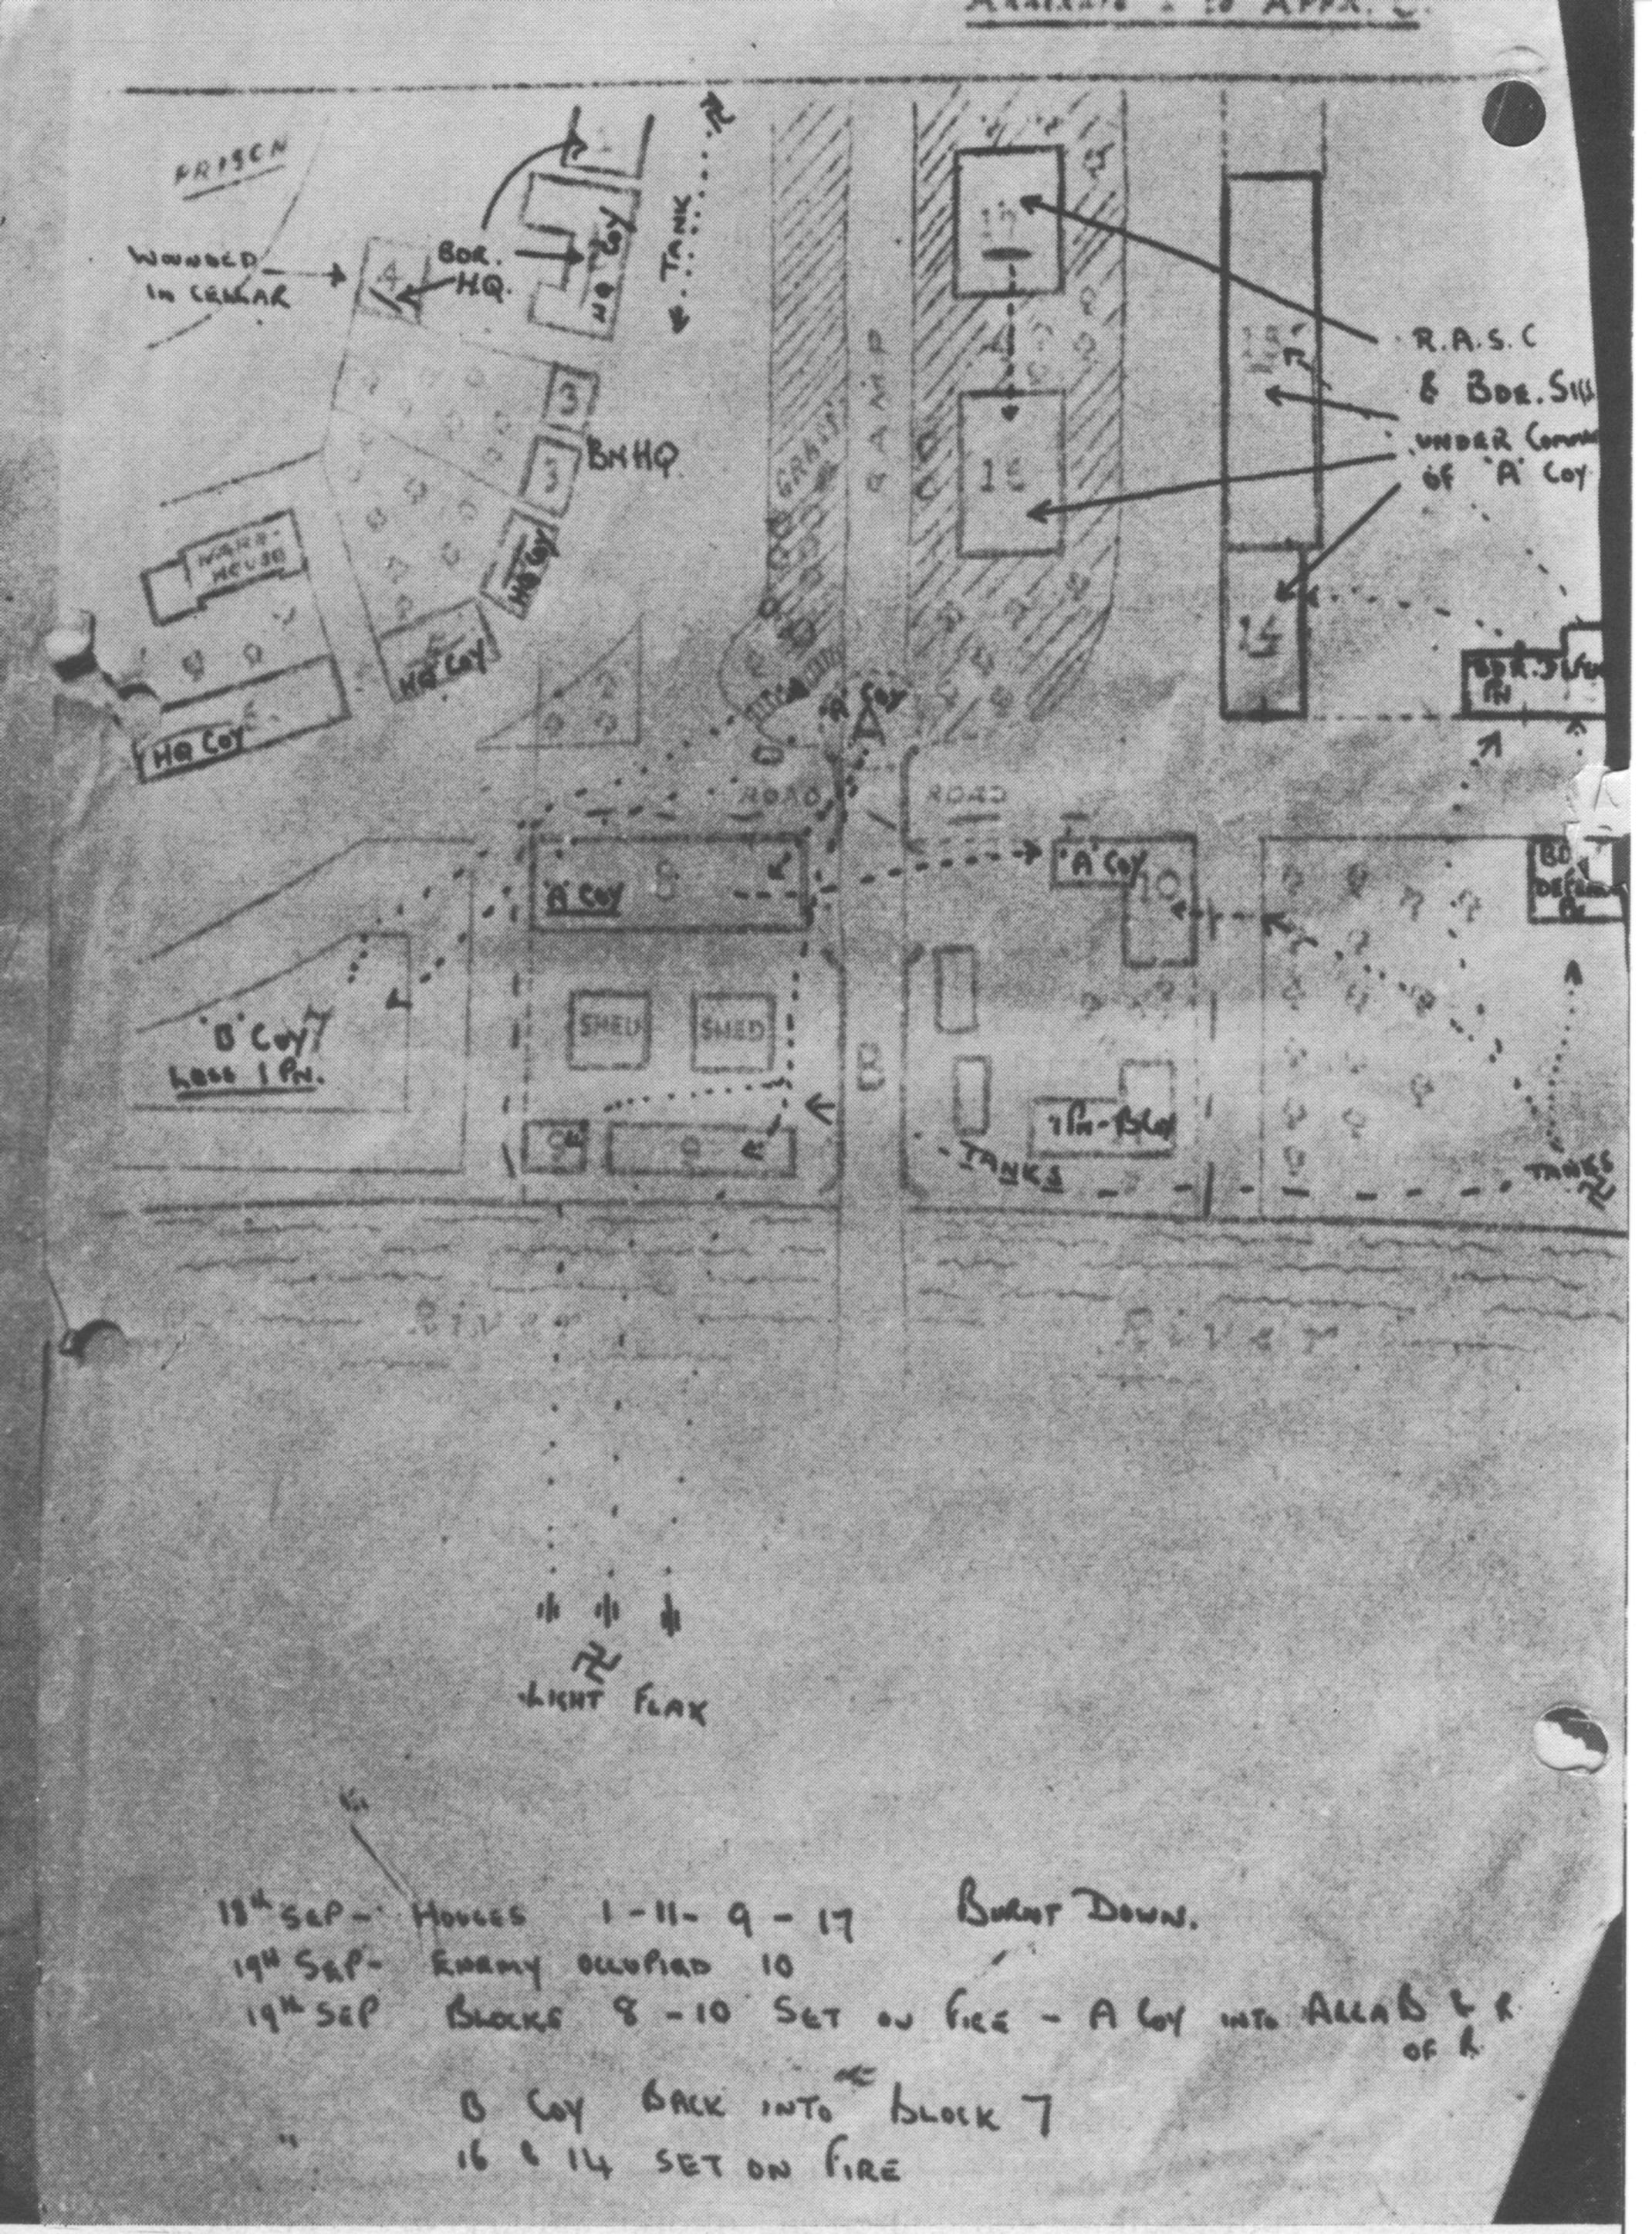 TO APPX.
PRISON
WOUNDED
IN CELLAR
4
BDE.
HQ.
1
HQ COY
TANK
3
3
BN HQ
HQ COY
HQ COY
WARE-
HOUSE
HQ COY
GRASS
RAMP
17
16
R.A.S.C
& BDE. SIGS
UNDER COMMA
OF 'A' COY
14
BDE. DEFEN
PN
'A' COY
A
ROAD
ROAD
8
'A' COY
'A' COY
10
BD
DEFEN
PN
'B' COY
7
LESS 1 PN.
SHED
SHED
B
1 PN - B COY
9
9
TANKS
TANKS
RIVER
RIVER
LIGHT FLAK
18TH SEP - HOUSES 1 - 11 - 9 - 17 BURNT DOWN.
19TH SEP - ENEMY OCCUPIED 10
19TH SEP BLOCKS 8 - 10 SET ON FIRE - A COY INTO AREA B & R
OF R.
B COY BACK INTO BLOCK 7
" 16 & 14 SET ON FIRE